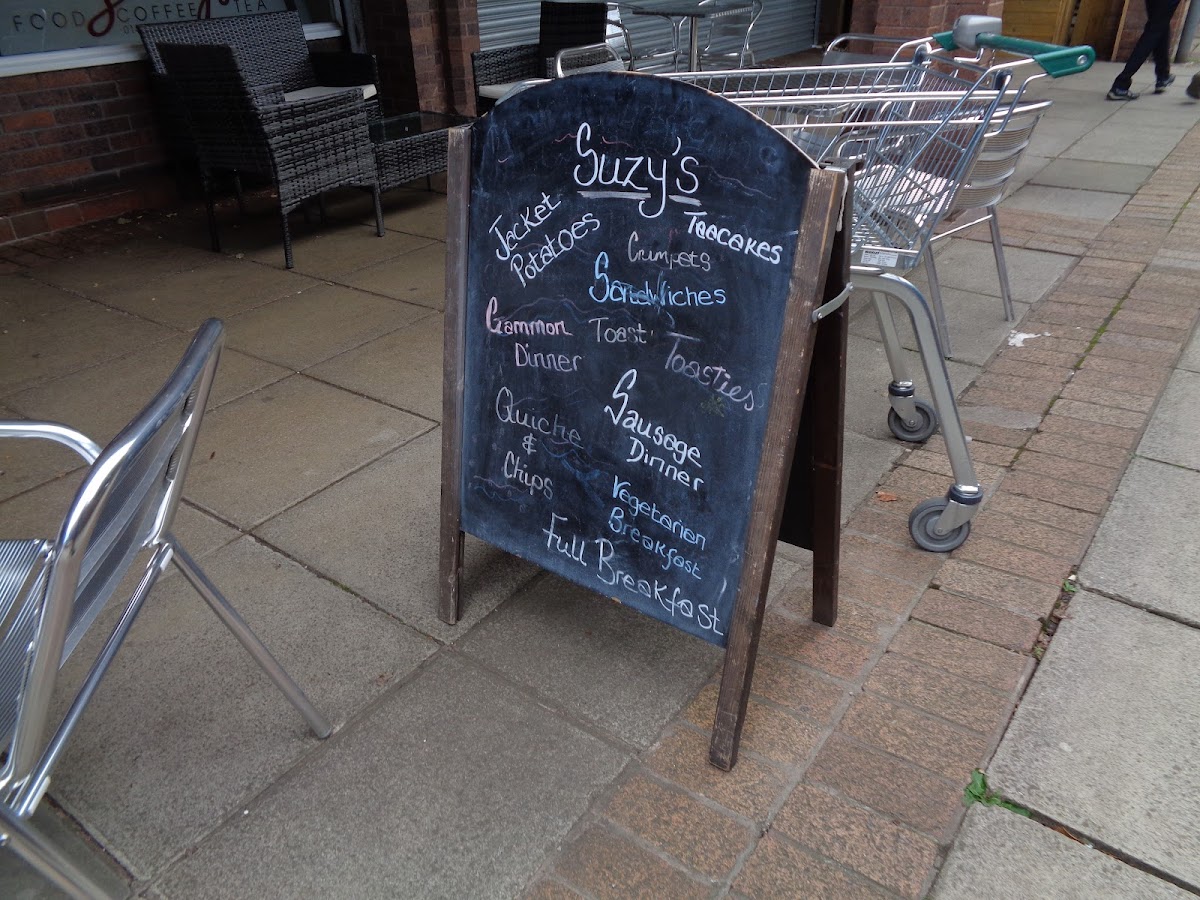 FOOD COFFEE TEA
Suzy's
Jacket
Potatoes
Teacakes
Crumpets
Sandwiches
Gammon
Dinner
Toast
Toasties
Quiche
&
Chips
Sausage
Dinner
Vegetarian
Breakfast
Full Breakfast